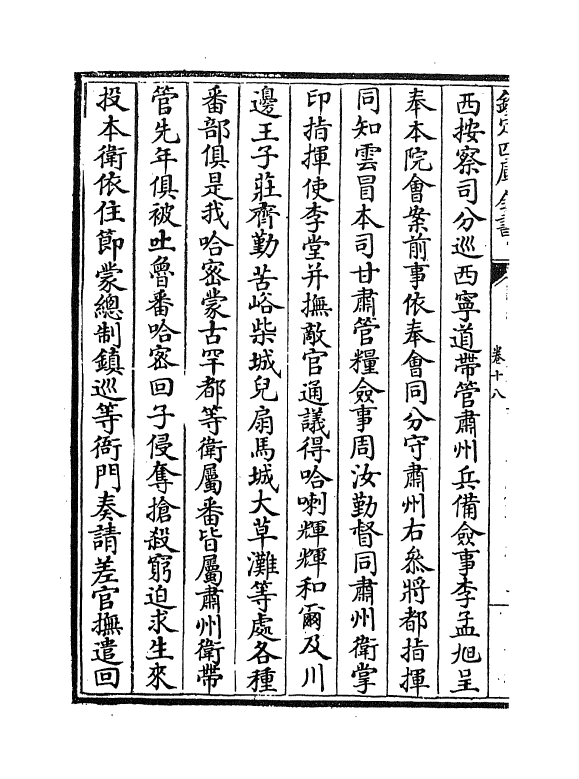 欽定四庫全書
卷十八
西按察司分巡西寧道帶管肅州兵備僉事李孟旭呈
奉本院會案前事依奉會同分守肅州右叅將都指揮
同知雲冒本司甘肅管糧僉事周汝勤督同肅州衛掌
印指揮使李堂并撫敵官通議得哈喇輝輝和爾及川
邊王子莊齊勤苦峪柴城兒扇馬城大草灘等處各種
番部俱是我哈宻蒙古罕都等衛屬番皆屬肅州衛帶
管先年俱被吐魯番哈宻回子侵奪搶殺窮迫求生來
投本衛依住節蒙總制鎮巡等衙門奏請差官撫遣回